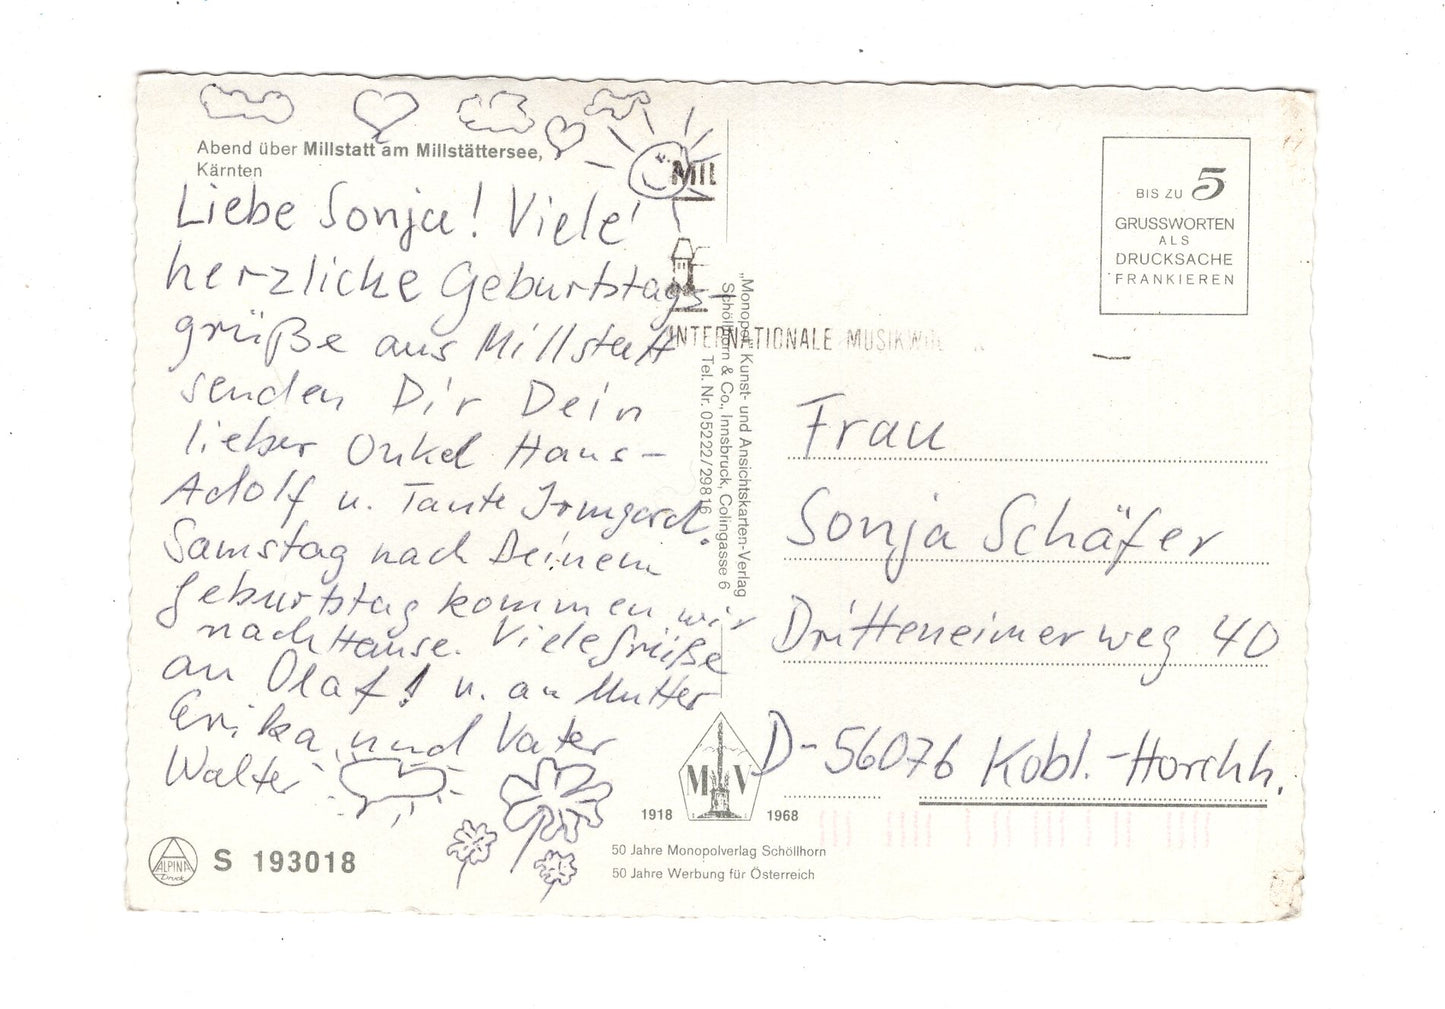 Abend über Millstatt am Millstättersee,
Kärnten
Liebe Sonja! Viele
herzliche Geburtstags-
grüße aus Millstatt
senden Dir Dein
lieber Onkel Hans-
Adolf u. Tante Irmgard.
Samstag nach Deinem
Geburtstag kommen wir
nach Hause. Viele Grüße
an Olaf! u. an Mutter
Erika und Vater
Walter
S 193018
ALPINA
Druck
MIL
INTERNATIONALE MUSIKWO
„Monopol" Kunst- und Ansichtskarten-Verlag
Schöllhorn & Co., Innsbruck, Colingasse 6
Tel. Nr. 05222/29816
M V
1918 1968
50 Jahre Monopolverlag Schöllhorn
50 Jahre Werbung für Österreich
BIS ZU 5
GRUSSWORTEN
ALS
DRUCKSACHE
FRANKIEREN
Frau
Sonja Schäfer
weg 40
D-56076 Kobl.-Horchh.